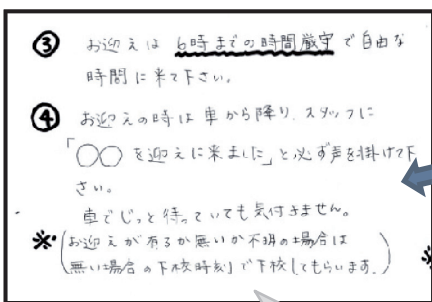 ③ お迎えは 6時までの時間厳守で自由な
時間に来て下さい。
④ お迎えの時は車から降り、スタッフに
「○○を迎えに来ました」と必ず声を掛けて下
さい。
車でじっと待っていても気付きません。
※(お迎えが有るか無いか不明の場合は
無い場合の下校時刻」で下校してもらいます。)
※